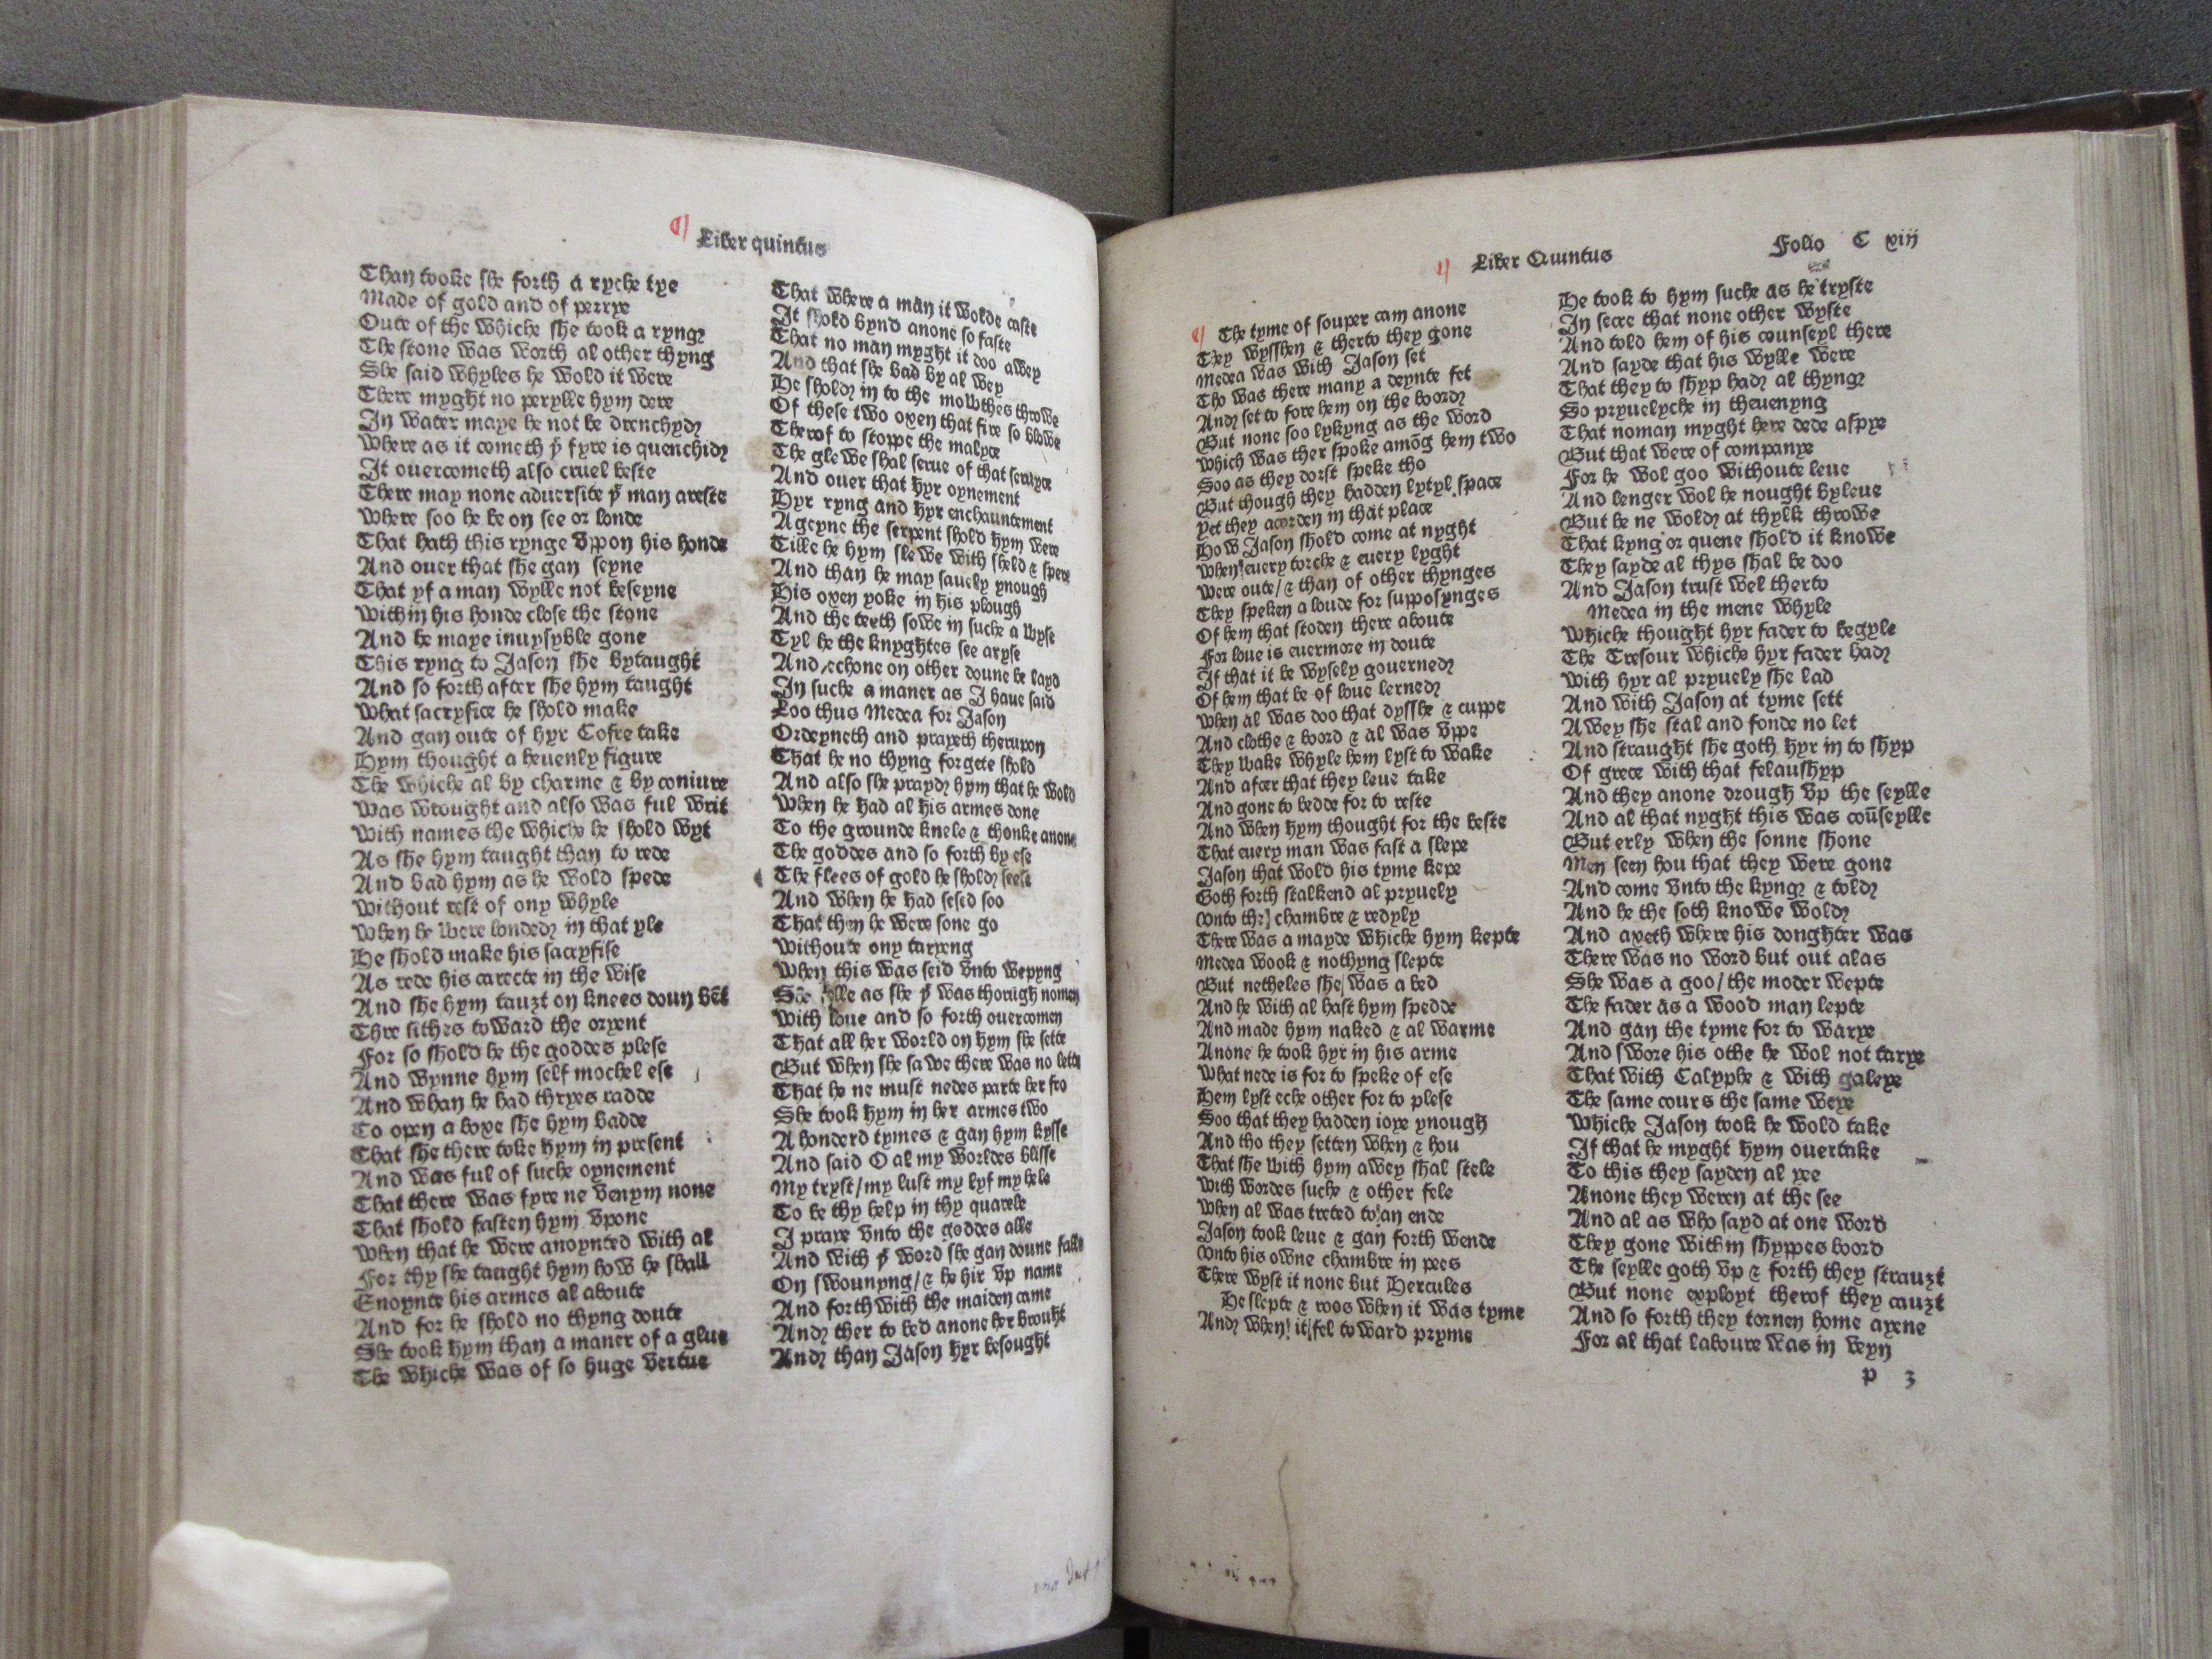 Liber quintus
Than tooke she forth a ryche tye
Made of gold and of perrye
Oute of the whiche she took a ryng
The stone was worth al other thyng
She said whyles he wold it were
There myght no perylle hym dere
In water maye he not be drenchyd
Where as it cometh yͤ fyre is quenchid
It ouercometh also cruel beste
There may none aduersite yͭ man areste
Where soo he be on see or londe
That hath this rynge vppon his honde
And ouer that she gan seyne
That yf a man wylle not beseyne
Within his honde close the stone
And he maye inuysyble gone
This ryng to Jason she bytaught
And so forth after she hym taught
What sacryfice he shold make
And gan oute of hyr Cofre take
Hym thought a heuenly figure
The whiche al by charme & by coniure
Was wrought and also was ful writ
With names the whiche he shold wyt
As she hym taught than to rede
And bad hym as he wold spede
Without rest of ony whyle
When he were londed in that yle
He shold make his sacryfise
As rede his carecte in the wise
And she hym tauzt on knees doun bēt
Thre sithes toward the oryent
For so shold he the goddes plese
And wynne hym self mochel ese
And whan he had thryes radde
To open a boxe she hym badde
That she there toke hym in present
And was ful of suche oynement
That there was fyre ne venym none
That shold fasten hym vpone
When that he were anoynted with al
For thy she taught hym how he shall
Enoynte his armes al aboute
And for he shold no thyng doute
She took hym than a maner of a glue
The whiche was of so huge vertue
That where a man it wolde caste
It shold bynd anone so faste
That no man myght it doo awey
And that she bad by al wey
He shold in to the mowthes throwe
Of these two oxen that fire so blowe
Therof to stoppe the malyce
The glewe shal serue of that seruyce
And ouer that hyr oynement
Hyr ryng and hyr enchauntement
Ageyne the serpent shold hym were
Tille he hym slewe with sheld & spere
And than he may sauely ynough
His oxen yoke in his plough
And the teeth sowe in suche a wyse
Tyl he the knyghtes see aryse
And echone on other doune be layd
In suche a maner as I haue said
Loo thus Medea for Jason
Ordeyneth and prayeth therupon
That he no thyng forgete shold
And also she prayd hym that he wold
When he had al his armes done
To the grounde knele & thonke anone
The goddes and so forth by ese
The flees of gold he shold seese
And when he had sesed soo
That then he were sone go
Withoute ony taryeng
When this was seid vnto wepyng
She fylle as she yͭ was thorugh nomen
With loue and so forth ouercomen
That all her world on hym she sette
But when she sawe there was no lette
That he ne must nedes parte her fro
She took hym in her armes two
A honderd tymes & gan hym kysse
And said O al my worldes blisse
My tryst/my lust my lyf my hele
To be thy help in thy quarele
I praye vnto the goddes alle
And with yͭ word she gan doune falle
On swounyng/& he hir vp name
And forth with the maiden came
And ther to bed anone her brouht
And than Jason hyr besought
Liber Quintus
Folio C xiij
The tyme of souper cam anone
They wysshen & therto they gone
Medea was with Jason set
Tho was there many a deynte fet
And set to fore hem on the boord
But none soo lykyng as the word
Which was ther spoke amōg hem two
Soo as they dorst speke tho
But though they hadden lytyl space
Yet they acorden in that place
How Jason shold come at nyght
When euery torche & euery lyght
Were oute/& than of other thynges
They speken a loude for supposynges
Of hem that stoden there aboute
For loue is euermore in doute
If that it be wysely gouerned
Of hem that be of loue lerned
When al was doo that dysshe & cuppe
And clothe & boord & al was vppe
They wake whyle hem lyst to wake
And after that they leue take
And gone to bedde for to reste
And when hym thought for the beste
That euery man was fast a slepe
Jason that wold his tyme kepe
Goth forth stalkend al pryuely
Vnto the chambre & redyly
There was a mayde whiche hym kepte
Medea wook & nothyng slepte
But netheles she was a bed
And he with al hast hym spedde
And made hym naked & al warme
Anone he took hyr in his arme
What nede is for to speke of ese
Hem lyst eche other for to plese
Soo that they hadden ioye ynough
And tho they setten when & hou
That she with hym awey shal stele
With wordes suche & other fele
When al was treted to an ende
Jason took leue & gan forth wende
Vnto his owne chambre in pees
There wyst it none but Hercules
He slepte & roos when it was tyme
And when it fel toward pryme
He took to hym suche as he tryste
In secre that none other wyste
And told hem of his counseyl there
And sayde that his wylle were
That they to shyp had al thyng
So pryuelyche in theuenyng
That noman myght here dede aspye
But that were of companye
For he wol goo withoute leue
And lenger wol he nought byleue
But he ne wold at thylk throwe
That kyng or quene shold it knowe
They sayde al thys shal be doo
And Jason trust wel therto
Medea in the mene whyle
Whiche thought hyr fader to begyle
The Tresour whiche hyr fader had
With hyr al pryuely she lad
And with Jason at tyme sett
Awey she stal and fonde no let
And straught she goth hyr in to shyp
Of grece with that felaushyp
And they anone drough vp the seylle
And al that nyght this was coūseylle
But erly when the sonne shone
Men seen hou that they were gone
And come vnto the kyng & told
And he the soth knowe wold
And axeth where his donghter was
There was no word but out alas
She was a goo/the moder wepte
The fader as a wood man lepte
And gan the tyme for to warye
And swore his othe he wol not tarye
That with Calyphe & with galeye
The same cours the same weye
Whiche Jason took he wold take
If that he myght hym ouertake
To this they sayden al yee
Anone they weren at the see
And al as who sayd at one word
They gone within shyppes boord
The seylle goth vp & forth they strauzt
But none exployt therof they cauzt
And so forth they tornen home ayene
For al that laboure was in veyn
p 3